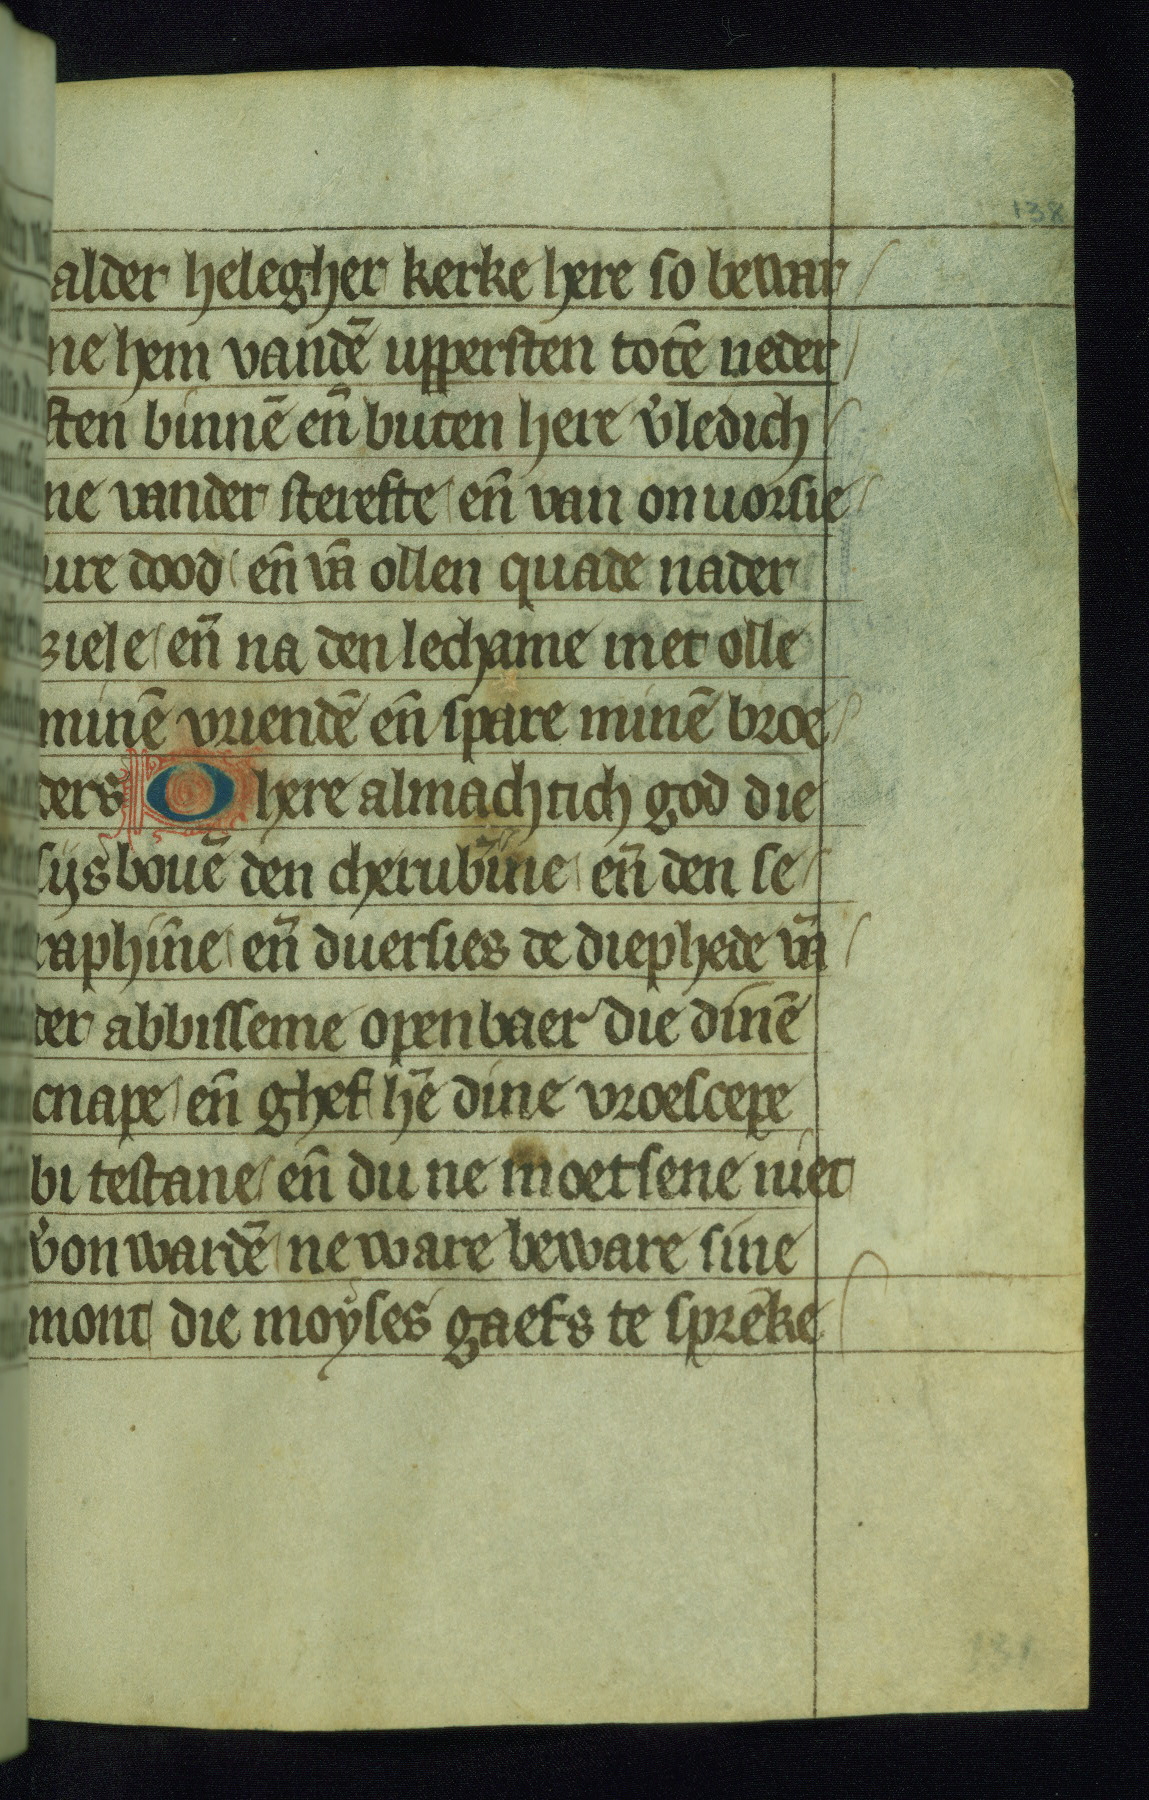 138
alder helegher kerke here so bewar
ne hem vandē uppersten totē neder
sten binnē en̄ buten here v̓ledich
ne vander sterefte en̄ van onuorsie
ure dood en̄ vā ollen quade nader
ziele en̄ na den lechame met olle
minē vriendē en̄ spare minē broe
ders O here almachtich god die
sijs bouē den cherubīne en̄ den se
raphīne en̄ duersies de diephede vā
der abbisseme openbaer die dinē
cnape en̄ ghef hē dine vroescepe
bi testane en̄ du ne moetsene niet
v̓onwardē ne ware beware sine
mont die moyses gaefs te sprēke
131